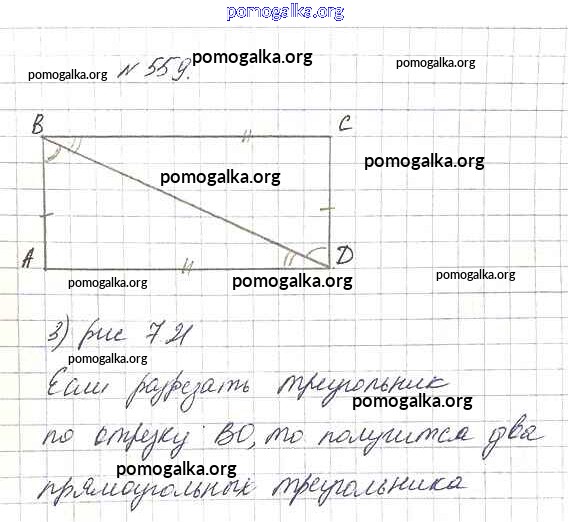 pomogalka.org
pomogalka.org
№ 559.
pomogalka.org
pomogalka.org
B
C
pomogalka.org
pomogalka.org
A
D
pomogalka.org
pomogalka.org
pomogalka.org
3) рис 7 21
pomogalka.org
Если разрезать треугольник
pomogalka.org
по отрезку BD, то получится два
pomogalka.org
прямоугольных треугольника